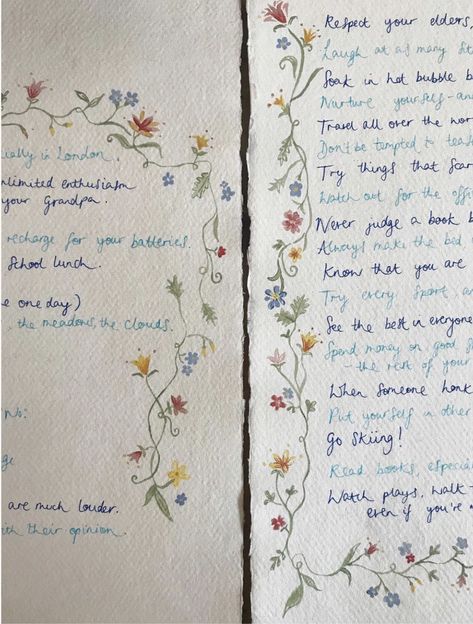 ually in London.
unlimited enthusiasm
your Grandpa.
recharge for your batteries.
School lunch.
e one day)
the meadows, the clouds.
ge
are much louder.
th their opinion.
Respect your elders,
Laugh at as many
Soak in hot bubble b
Nurture yourself - an
Travel all over the wor
Don't be tempted to
Try things that scar
Watch out for the offi
Never judge a book b
Always make the bed
Know that you are
Try every sport a
See the best in everyone
Spend money on good
- the rest of your
When someone honk
Put yourself in other
Go Skiing!
Read books, especia
Watch plays, walk -
even if you're